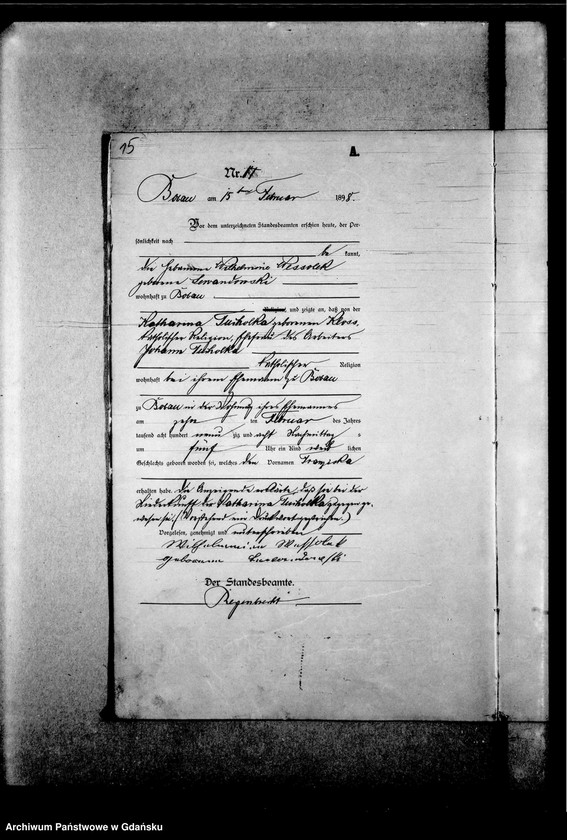 15
A.
Nr. 14
Borau am 15ten Februar 1898.
Vor dem unterzeichneten Standesbeamten erschien heute, der Per-
sönlichkeit nach
be kannt,
die Hebamme Wilhelmine Wessolek
geborene Lewandowski
wohnhaft zu Borau
Religion, und zeigte an, daß von der
Katharina Tucholka geborenen Kloss,
katholischer Religion, Ehefrau des Arbeiters
Johann Tucholka
katholischer Religion
wohnhaft bei ihrem Ehemann zu Borau
zu Borau in der Wohnung ihres Ehemannes
am zehn ten Februar des Jahres
tausend acht hundert neun zig und acht Nachmittags
um fünf Uhr ein Kind weib lichen
Geschlechts geboren worden sei, welches den Vornamen Franziska
erhalten habe. Die Anzeigende erklärte, daß sie bei der
Niederkunft der Katharina Tucholka zugegen ge-
wesen sei. (Vorstehend ein Druckwort gestrichen.)
Vorgelesen, genehmigt und unterschrieben
Wilhelmine Wessolek
geborene Lewandowski
Der Standesbeamte.
Regenbrecht
Archiwum Państwowe w Gdańsku